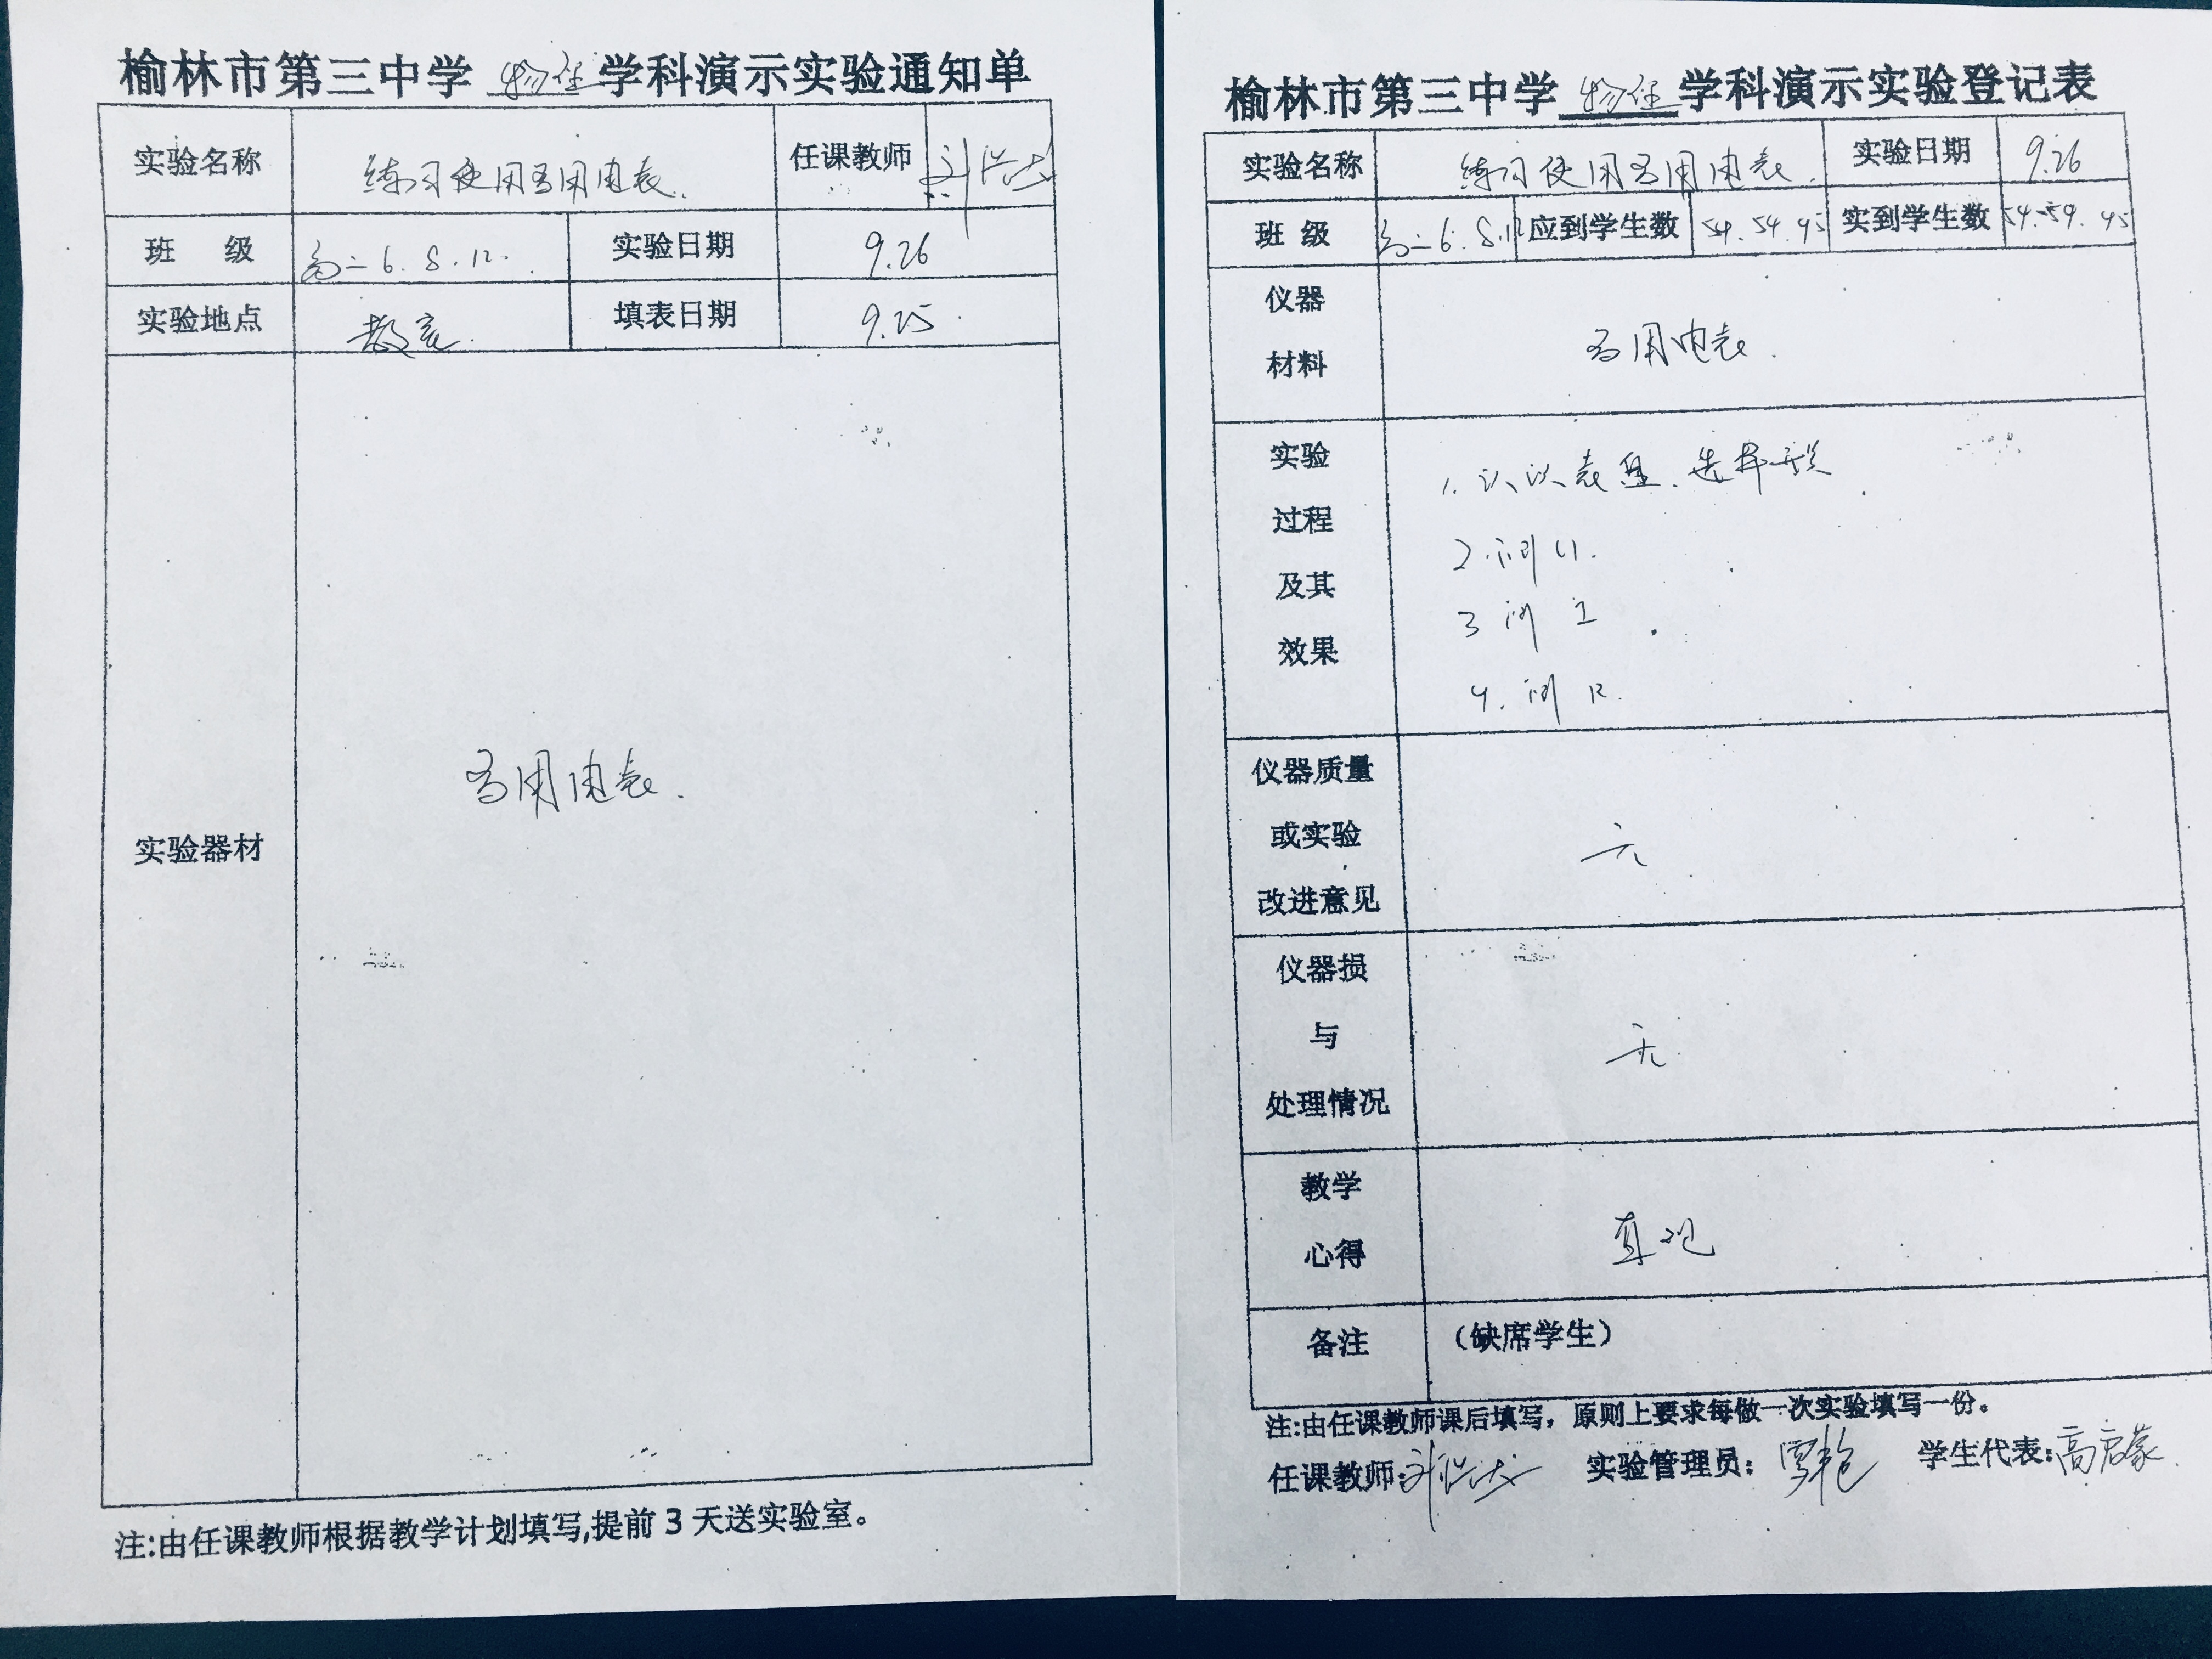 榆林市第三中学 物理 学科演示实验通知单
实验名称 练习使用多用电表. 任课教师
班 级 高二 6. 8. 12. 实验日期 9.26
实验地点 教室. 填表日期 9.25
实验器材 多用电表.
注:由任课教师根据教学计划填写,提前 3 天送实验室。
榆林市第三中学 物理 学科演示实验登记表
实验名称 练习使用多用电表. 实验日期 9.26
班 级 高二 6. 8. 12 应到学生数 54. 54. 45 实到学生数 54. 54. 45
仪器
材料
多用电表.
实验
过程
及其
效果
1. 认识表盘、选择开关
2. 测 U.
3 测 I
4. 测 R.
仪器质量
或实验
改进意见
无
仪器损
与
处理情况
无
教学
心得
直观
备注 (缺席学生)
注:由任课教师课后填写，原则上要求每做一次实验填写一份。
任课教师: 实验管理员: 学生代表: